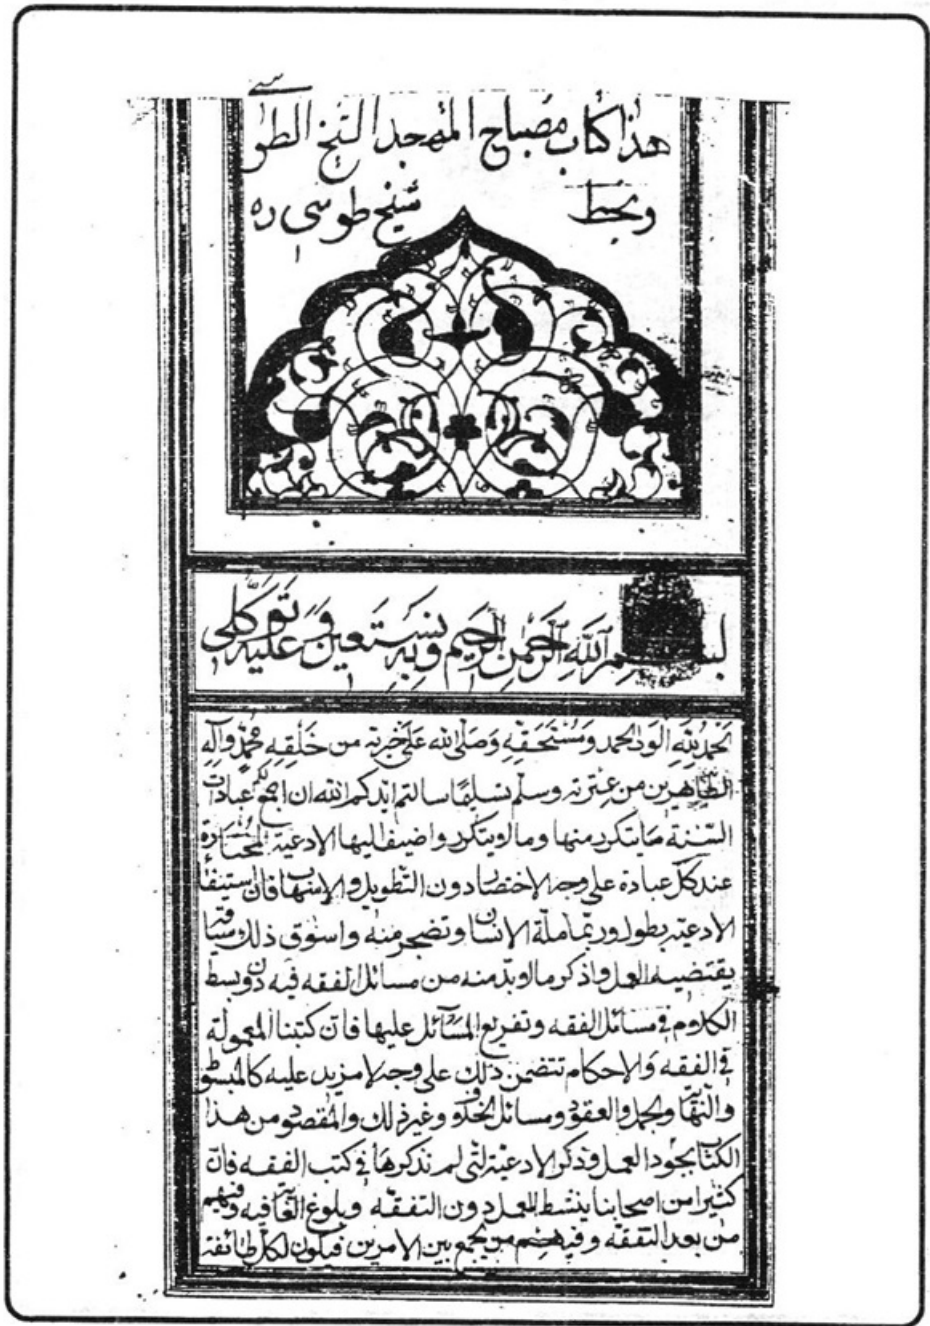 هذا كتاب مصباح المتهجد الشيخ الطوسي
وبخط شيخ طوسي ره
بسم الله الرحمن الرحيم وبه نستعين وعليه توكلي
الحمد لله الولد الحمد ومستحقه وصلى الله على خيرته من خلقه محمد وآله
الطاهرين من عترته وسلم تسليما سالتم ايدكم الله ان اجمع لكم عبادات
السنة ما يتكرر منها وما لا يتكرر واضيف اليها الادعية المختارة
عند كل عبادة على وجه الاختصار دون التطويل والاسهاب فان استيفاء
الادعية يطول وربما مله الانسان وتضجر منه واسوق ذلك سياقة
يقتضيه العمل واذكر ما لا بد منه من مسائل الفقه فيه دون بسط
الكلام في مسائل الفقه وتفريع المسائل عليها فان كتبنا المعمولة
في الفقه والاحكام تتضمن ذلك على وجه لا مزيد عليه كالمبسوط
والنهاية والجمل والعقود ومسائل الخلاف وغير ذلك والمقصود من هذا
الكتاب مجرد العمل وذكر الادعية التي لم نذكرها في كتب الفقه فان
كثيرا من اصحابنا ينشط للعمل دون التفقه وبلوغ الغاية فيه وفيهم
من يقصد التفقه وفيهم من يجمع بين الامرين فيكون لكل طائفة